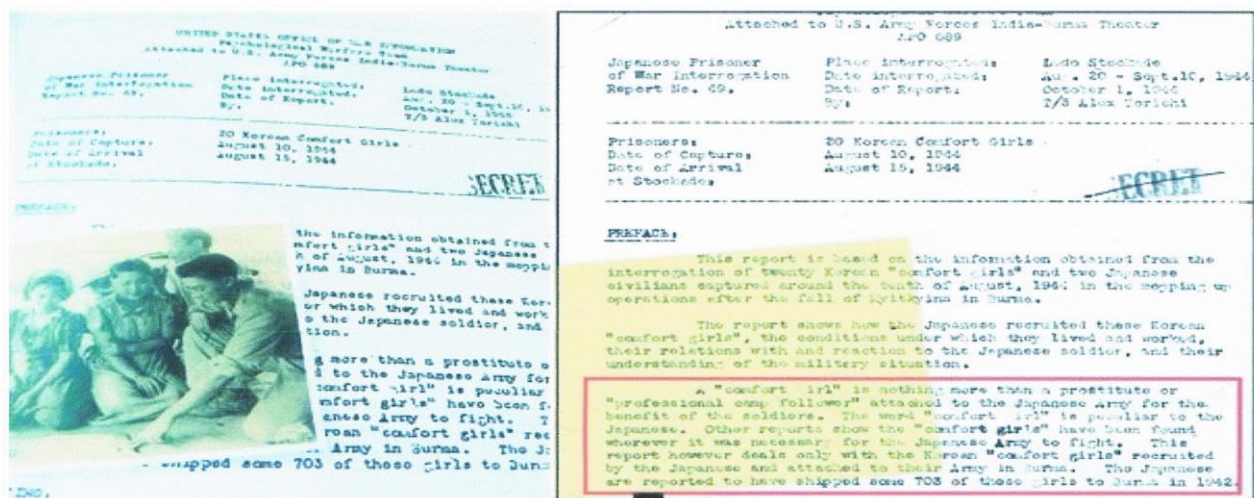 UNITED STATES OFFICE OF WAR INFORMATION
Psychological Warfare Team
Attached to U.S. Army Forces India-Burma Theater
APO 689
Japanese Prisoner Place interrogated: Ledo Stockade
of War Interrogation Date interrogated: Aug. 20 - Sept.10, 19
Report No. 49. Date of Report: October 1, 1944
By: T/3 Alex Yorichi
Prisoners: 20 Korean Comfort Girls
Date of Capture: August 10, 1944
Date of Arrival August 15, 1944
at Stockade:
SECRET
PREFACE:
the information obtained from t
mfort girls" and two Japanese
h of August, 1944 in the mopping
yina in Burma.
Japanese recruited these Kor
or which they lived and work
o the Japanese soldier, and
tion.
g more than a prostitute o
d to the Japanese Army for
comfort girl" is peculiar
mfort girls" have been f
anese Army to fight. T
rean "comfort girls" rec
Army in Burma. The J
shipped some 703 of these girls to Burm
Attached to U.S. Army Forces India-Burma Theater
APO 689
Japanese Prisoner Place interrogated: Ledo Stockade
of War Interrogation Date interrogated: Aug. 20 - Sept.10, 1944
Report No. 49. Date of Report: October 1, 1944
By: T/3 Alex Yorichi
Prisoners: 20 Korean Comfort Girls
Date of Capture: August 10, 1944
Date of Arrival August 15, 1944
at Stockade:
SECRET
PREFACE:
This report is based on the information obtained from the
interrogation of twenty Korean "comfort girls" and two Japanese
civilians captured around the tenth of August, 1944 in the mopping up
operations after the fall of Myitkyina in Burma.
The report shows how the Japanese recruited these Korean
"comfort girls", the conditions under which they lived and worked,
their relations with and reaction to the Japanese soldier, and their
understanding of the military situation.
A "comfort irl" is nothing more than a prostitute or
"professional camp follower" attached to the Japanese Army for the
benefit of the soldiers. The word "comfort irl" is peculiar to the
Japanese. Other reports show the "comfort girls" have been found
wherever it was necessary for the Japanese Army to fight. This
report however deals only with the Korean "comfort girls" recruited
by the Japanese and attached to their Army in Burma. The Japanese
are reported to have shipped some 703 of these girls to Burma in 1942.